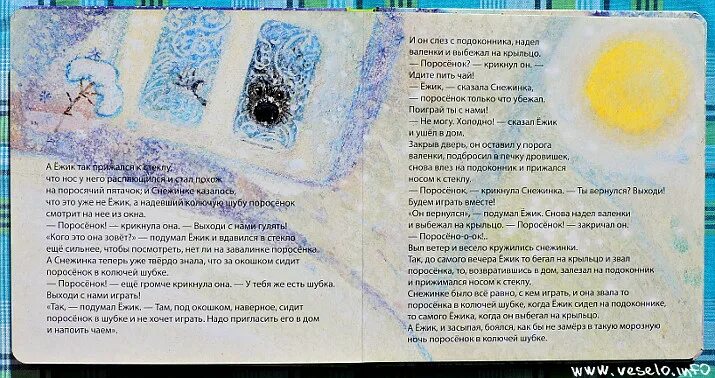 А Ёжик так прижался к стеклу,
что нос у него расплющился и стал похож
на поросячий пятачок; и Снежинке казалось,
что это уже не Ёжик, а надевший колючую шубу поросёнок
смотрит на нее из окна.
— Поросёнок! — крикнула она. — Выходи с нами гулять!
«Кого это она зовёт?» — подумал Ёжик и вдавился в стекло
ещё сильнее, чтобы посмотреть, нет ли на завалинке поросёнка.
А Снежинка теперь уже твёрдо знала, что за окошком сидит
поросёнок в колючей шубке.
— Поросёнок! — ещё громче крикнула она. — У тебя же есть шубка.
Выходи с нами играть!
«Так, — подумал Ёжик. — Там, под окошком, наверное, сидит
поросёнок в шубке и не хочет играть. Надо пригласить его в дом
и напоить чаем».
И он слез с подоконника, надел
валенки и выбежал на крыльцо.
— Поросёнок? — крикнул он. —
Идите пить чай!
— Ёжик, — сказала Снежинка,
— поросёнок только что убежал.
Поиграй ты с нами!
— Не могу. Холодно! — сказал Ёжик
и ушёл в дом.
Закрыв дверь, он оставил у порога
валенки, подбросил в печку дровишек,
снова влез на подоконник и прижался
носом к стеклу.
— Поросёнок, — крикнула Снежинка. — Ты вернулся? Выходи!
Будем играть вместе!
«Он вернулся», — подумал Ёжик. Снова надел валенки
и выбежал на крыльцо. — Поросёнок! — закричал он. —
Поросёно-о-ок!..
Выл ветер и весело кружились снежинки.
Так, до самого вечера Ёжик то бегал на крыльцо и звал
поросёнка, то, возвратившись в дом, залезал на подоконник
и прижимался носом к стеклу.
Снежинке было всё равно, с кем играть, и она звала то
поросёнка в колючей шубке, когда Ёжик сидел на подоконнике,
то самого Ёжика, когда он выбегал на крыльцо.
А Ёжик, и засыпая, боялся, как бы не замёрз в такую морозную
ночь поросёнок в колючей шубке.
www.veselo.info